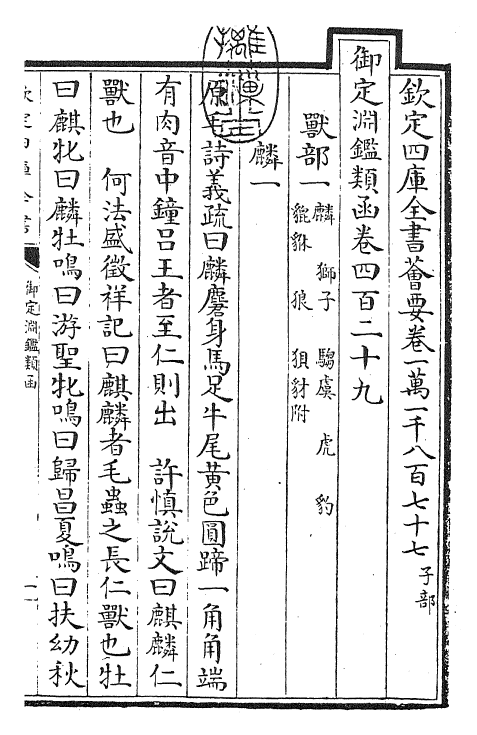 欽定四庫全書薈要卷一萬一千八百七十七 子部
御定淵鑑類函卷四百二十九
獸部一 麟 獅子 騶虞 虎 豹
貔貅 狼 狽豺附
麟一
原毛詩義疏曰麟麕身馬足牛尾黄色圓蹄一角角端
有肉音中鐘呂王者至仁則出 許慎說文曰麒麟仁
獸也 何法盛徵祥記曰麒麟者毛蟲之長仁獸也牡
曰麒牝曰麟牡鳴曰游聖牝鳴曰歸昌夏鳴曰扶幼秋
御定淵鑑類函